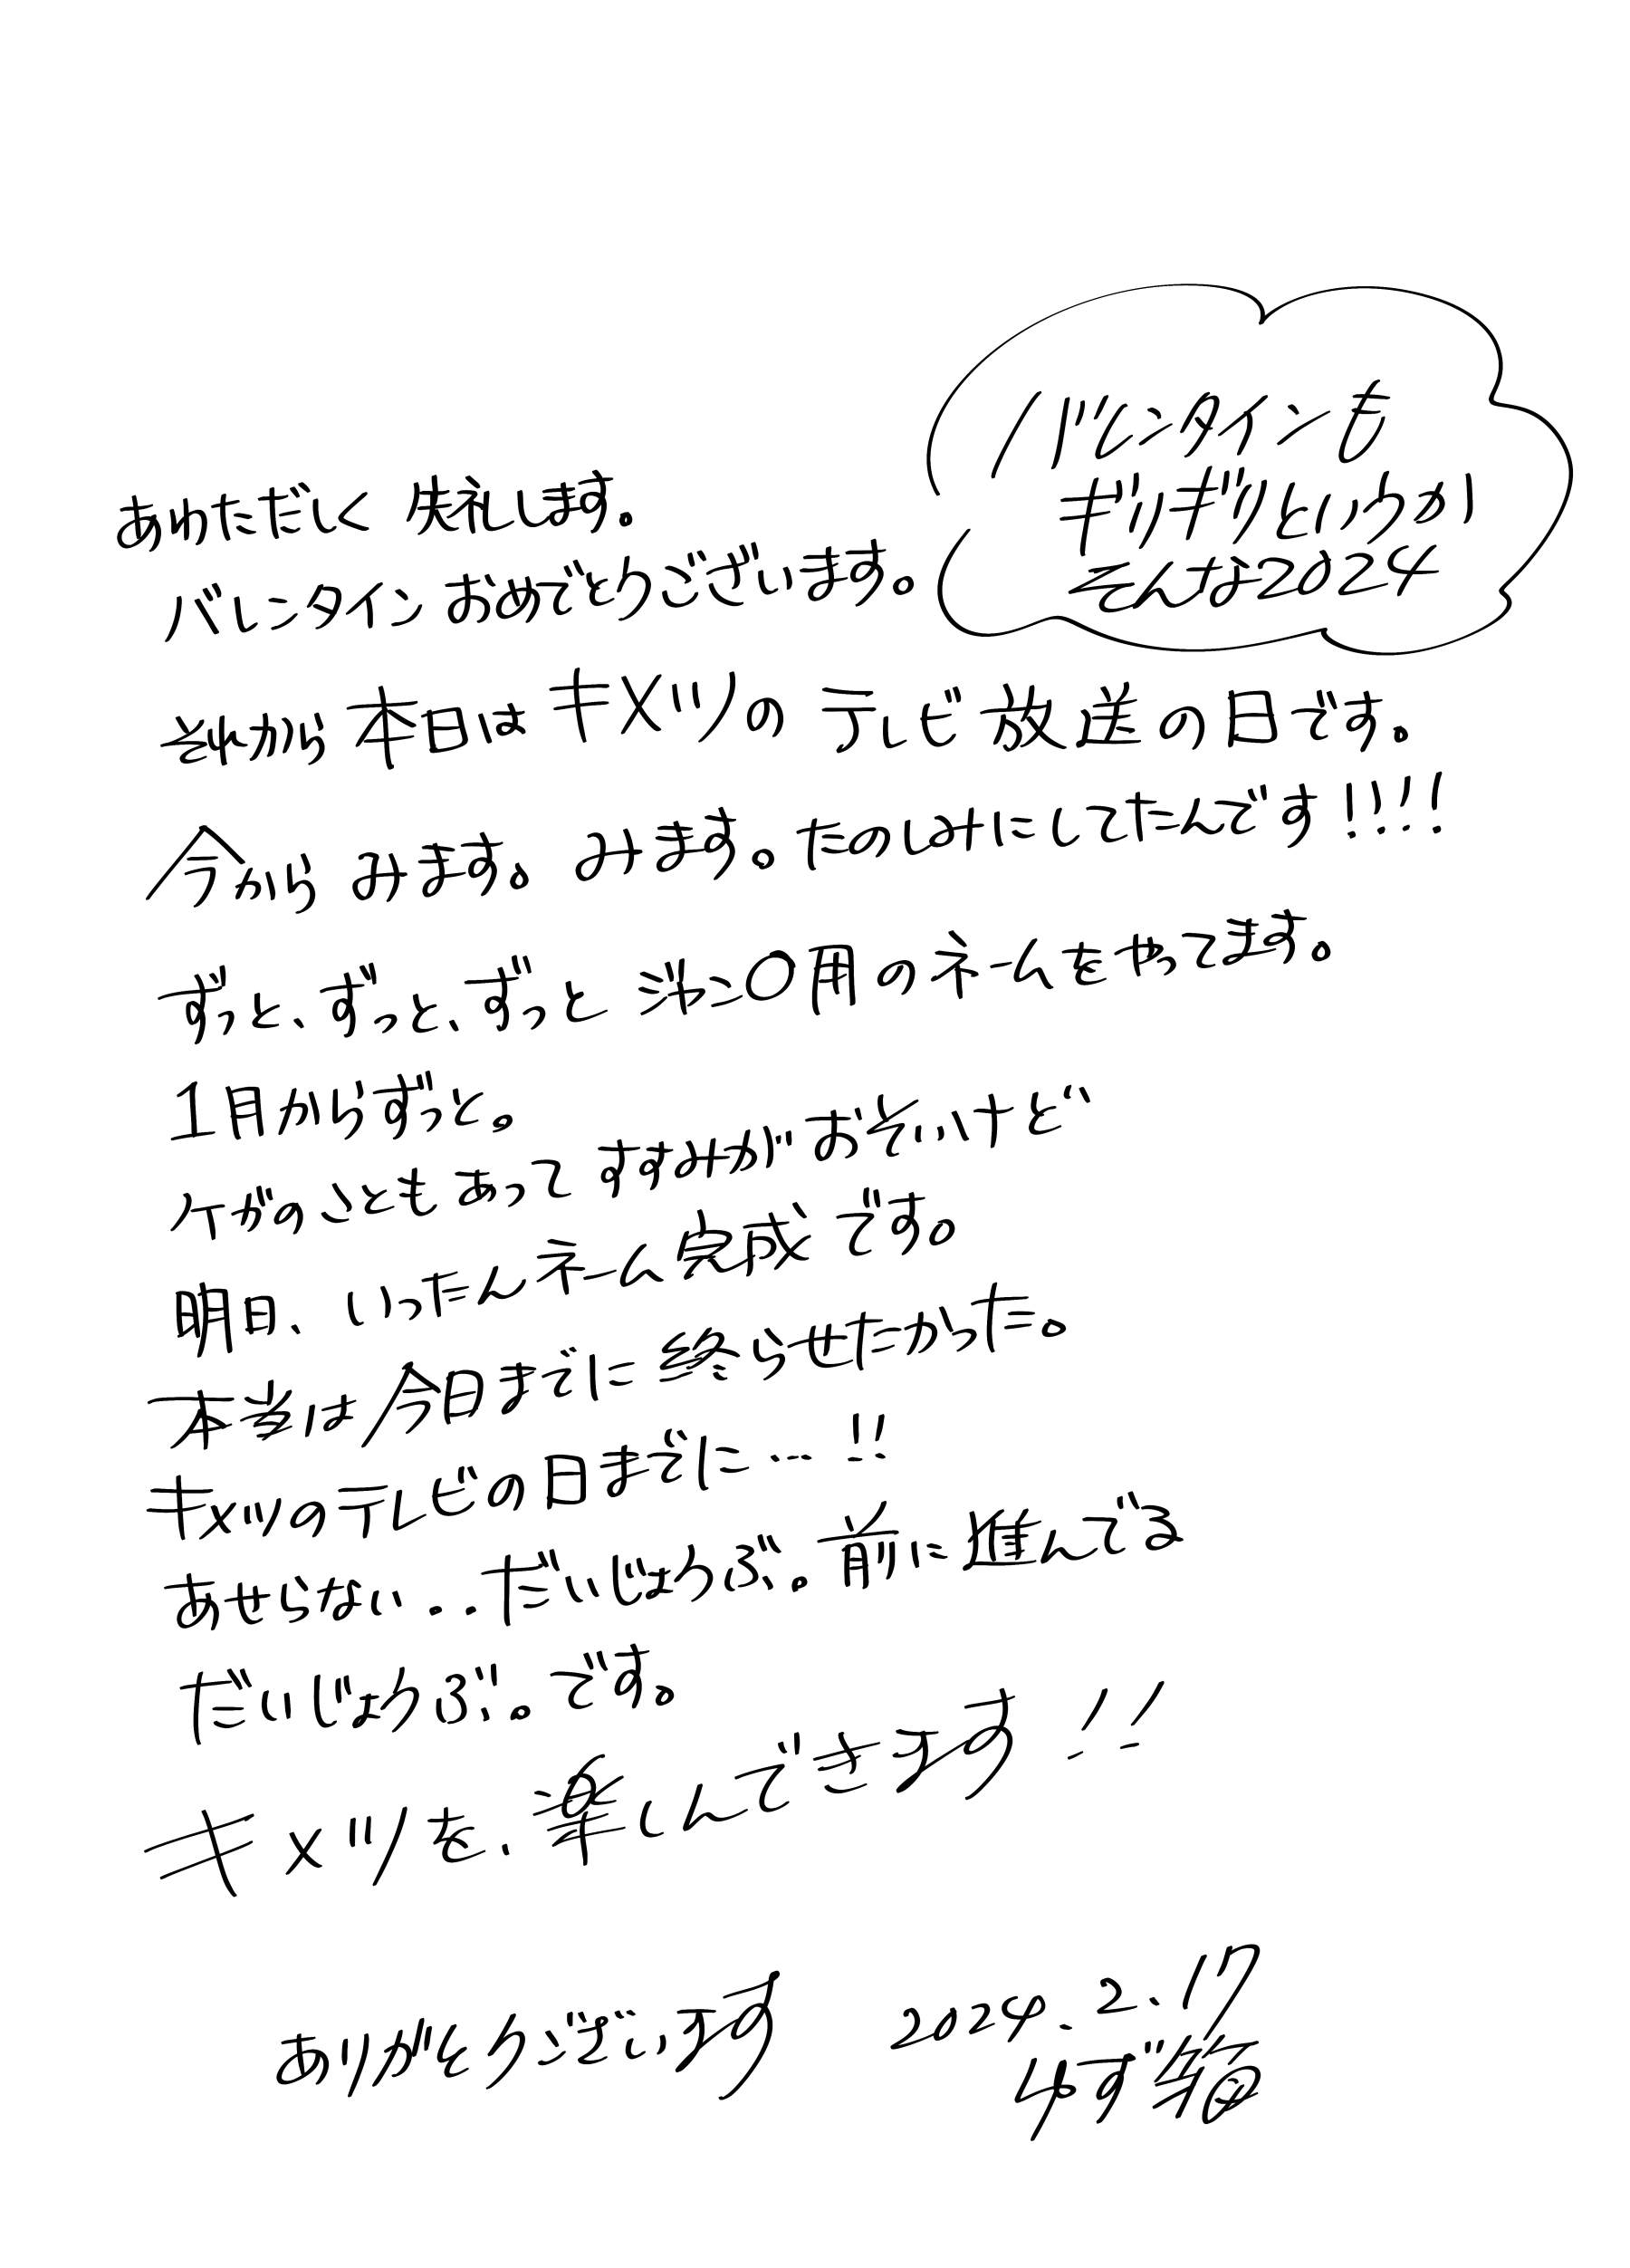 あわただしく 失礼します。
バレンタインおめでとうございます。
バレンタインも
ギリギリというか
そんな2024
それから 本日は キメツの テレビ放送の日です。
今から みます。みます。たのしみにしてたんです!!!!
ずっと、ずっと、ずっと ジャン〇用のネームをやってます。
1月からずっと。
ケガのこともあって すすみがおそいけど
明日、いったんネーム完成です。
本当は今日までに終らせたかった。
キメツのテレビの日までに…!!
あせらない..だいじょうぶ。前に進んでる
だいじょうぶ。です。
キメツを、楽しんできます!!
ありがとうございます
2024.2.17